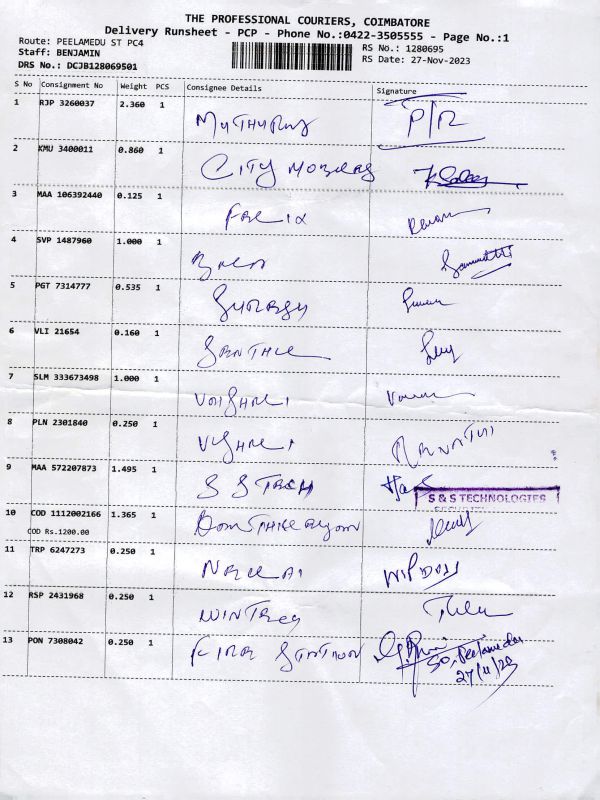 THE PROFESSIONAL COURIERS, COIMBATORE
Delivery Runsheet - PCP - Phone No.:0422-3505555 - Page No.:1
Route: PEELAMEDU ST PC4
RS No.: 1280695
Staff: BENJAMIN
RS Date: 27-Nov-2023
DRS No.: DCJB128069501
S No Consignment No Weight PCS Consignee Details Signature
1 RJP 3260037 2.360 1
MUTHURAJ P/R
2 KMU 3400011 0.860 1
CITY
3 MAA 106392440 0.125 1
FELIX
4 SVP 1487960 1.000 1
5 PGT 7314777 0.535 1
6 VLI 21654 0.160 1
7 SLM 333673498 1.000 1
8 PLN 2301840 0.250 1
9 MAA 572207873 1.495 1
S S TECH
S & S TECHNOLOGIES
10 COD 1112002166 1.365 1
COD Rs.1200.00
11 TRP 6247273 0.250 1
12 RSP 2431968 0.250 1
13 PON 7308042 0.250 1
FIRE STATION
SO, Peelamedu
27/11/23